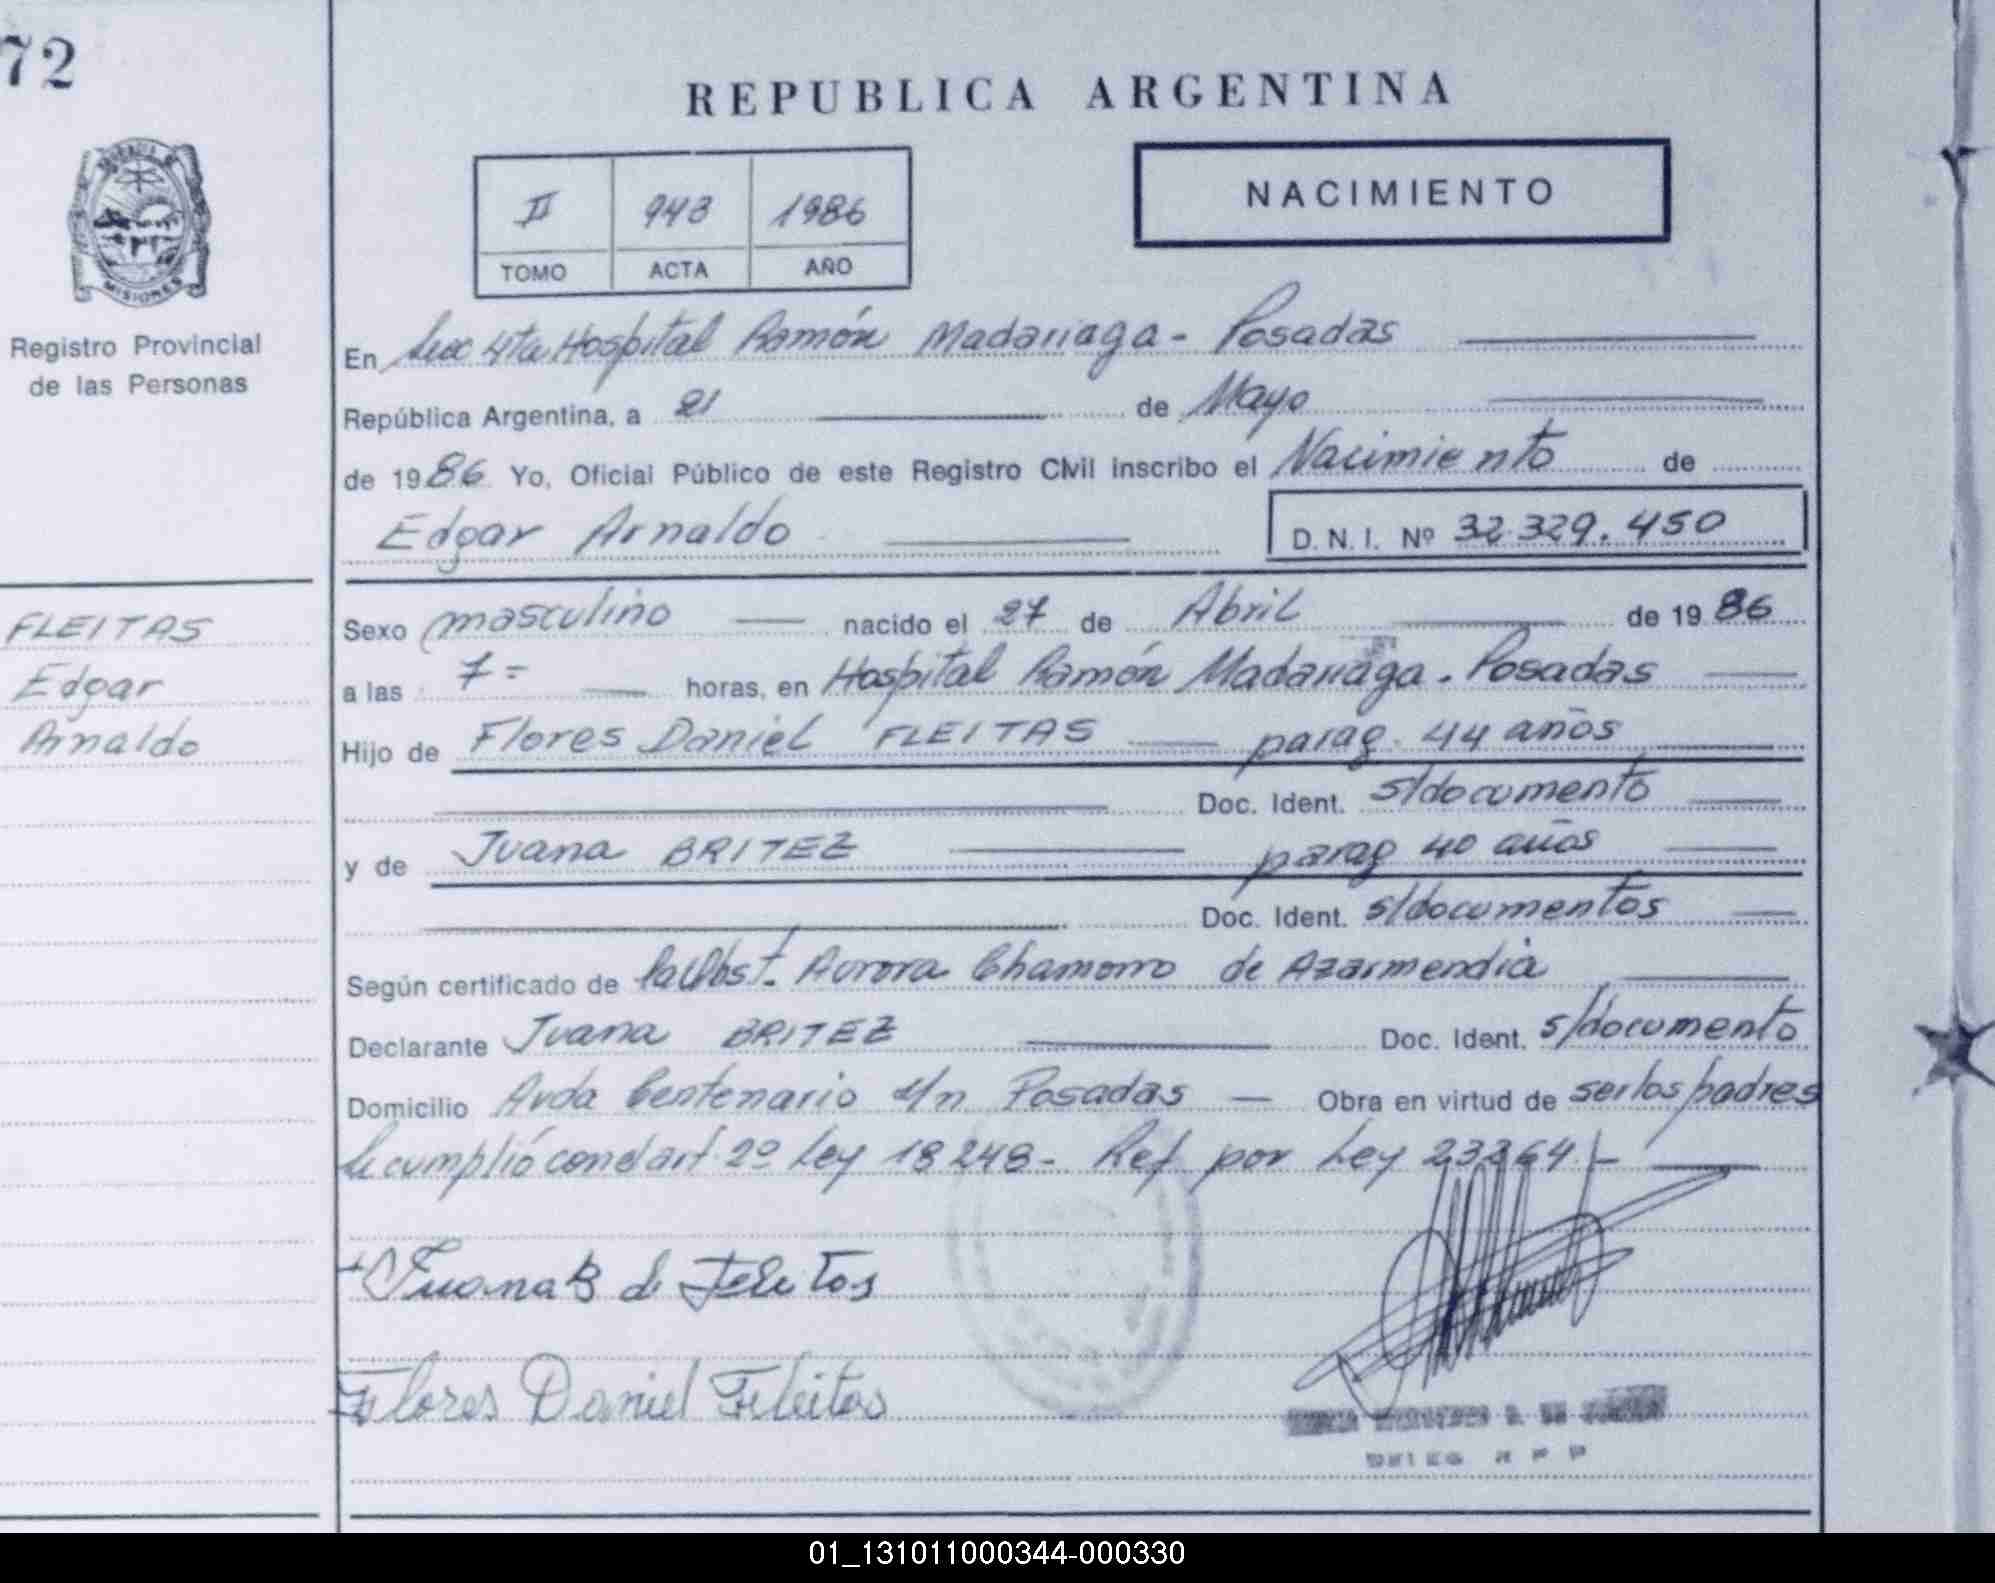 72
REPUBLICA ARGENTINA
II 943 1986
TOMO ACTA AÑO
NACIMIENTO
MISIONES
Registro Provincial
de las Personas
En Secc 4ta Hospital Ramón Madariaga - Posadas
República Argentina, a 21 de Mayo
de 1986 Yo, Oficial Público de este Registro Civil inscribo el Nacimiento de
Edgar Arnaldo D. N. I. Nº 32.329.450
FLEITAS
Edgar
Arnaldo
Sexo masculino nacido el 27 de Abril de 1986
a las 7= horas, en Hospital Ramón Madariaga. Posadas
Hijo de Flores Daniel FLEITAS parag. 44 años
Doc. Ident. s/documento
y de Juana BRITEZ parag 40 años
Doc. Ident. s/documentos
Según certificado de Obst. Aurora Chamorro de Azarmendia
Declarante Juana BRITEZ Doc. Ident. s/documento
Domicilio Avda Centenario s/n Posadas — Obra en virtud de ser los padres
Se cumplió con el art. 2º Ley 18248 - Ref por Ley 23264 -
Juana B de Fleitas
Flores Daniel Fleitas
01_131011000344-000330